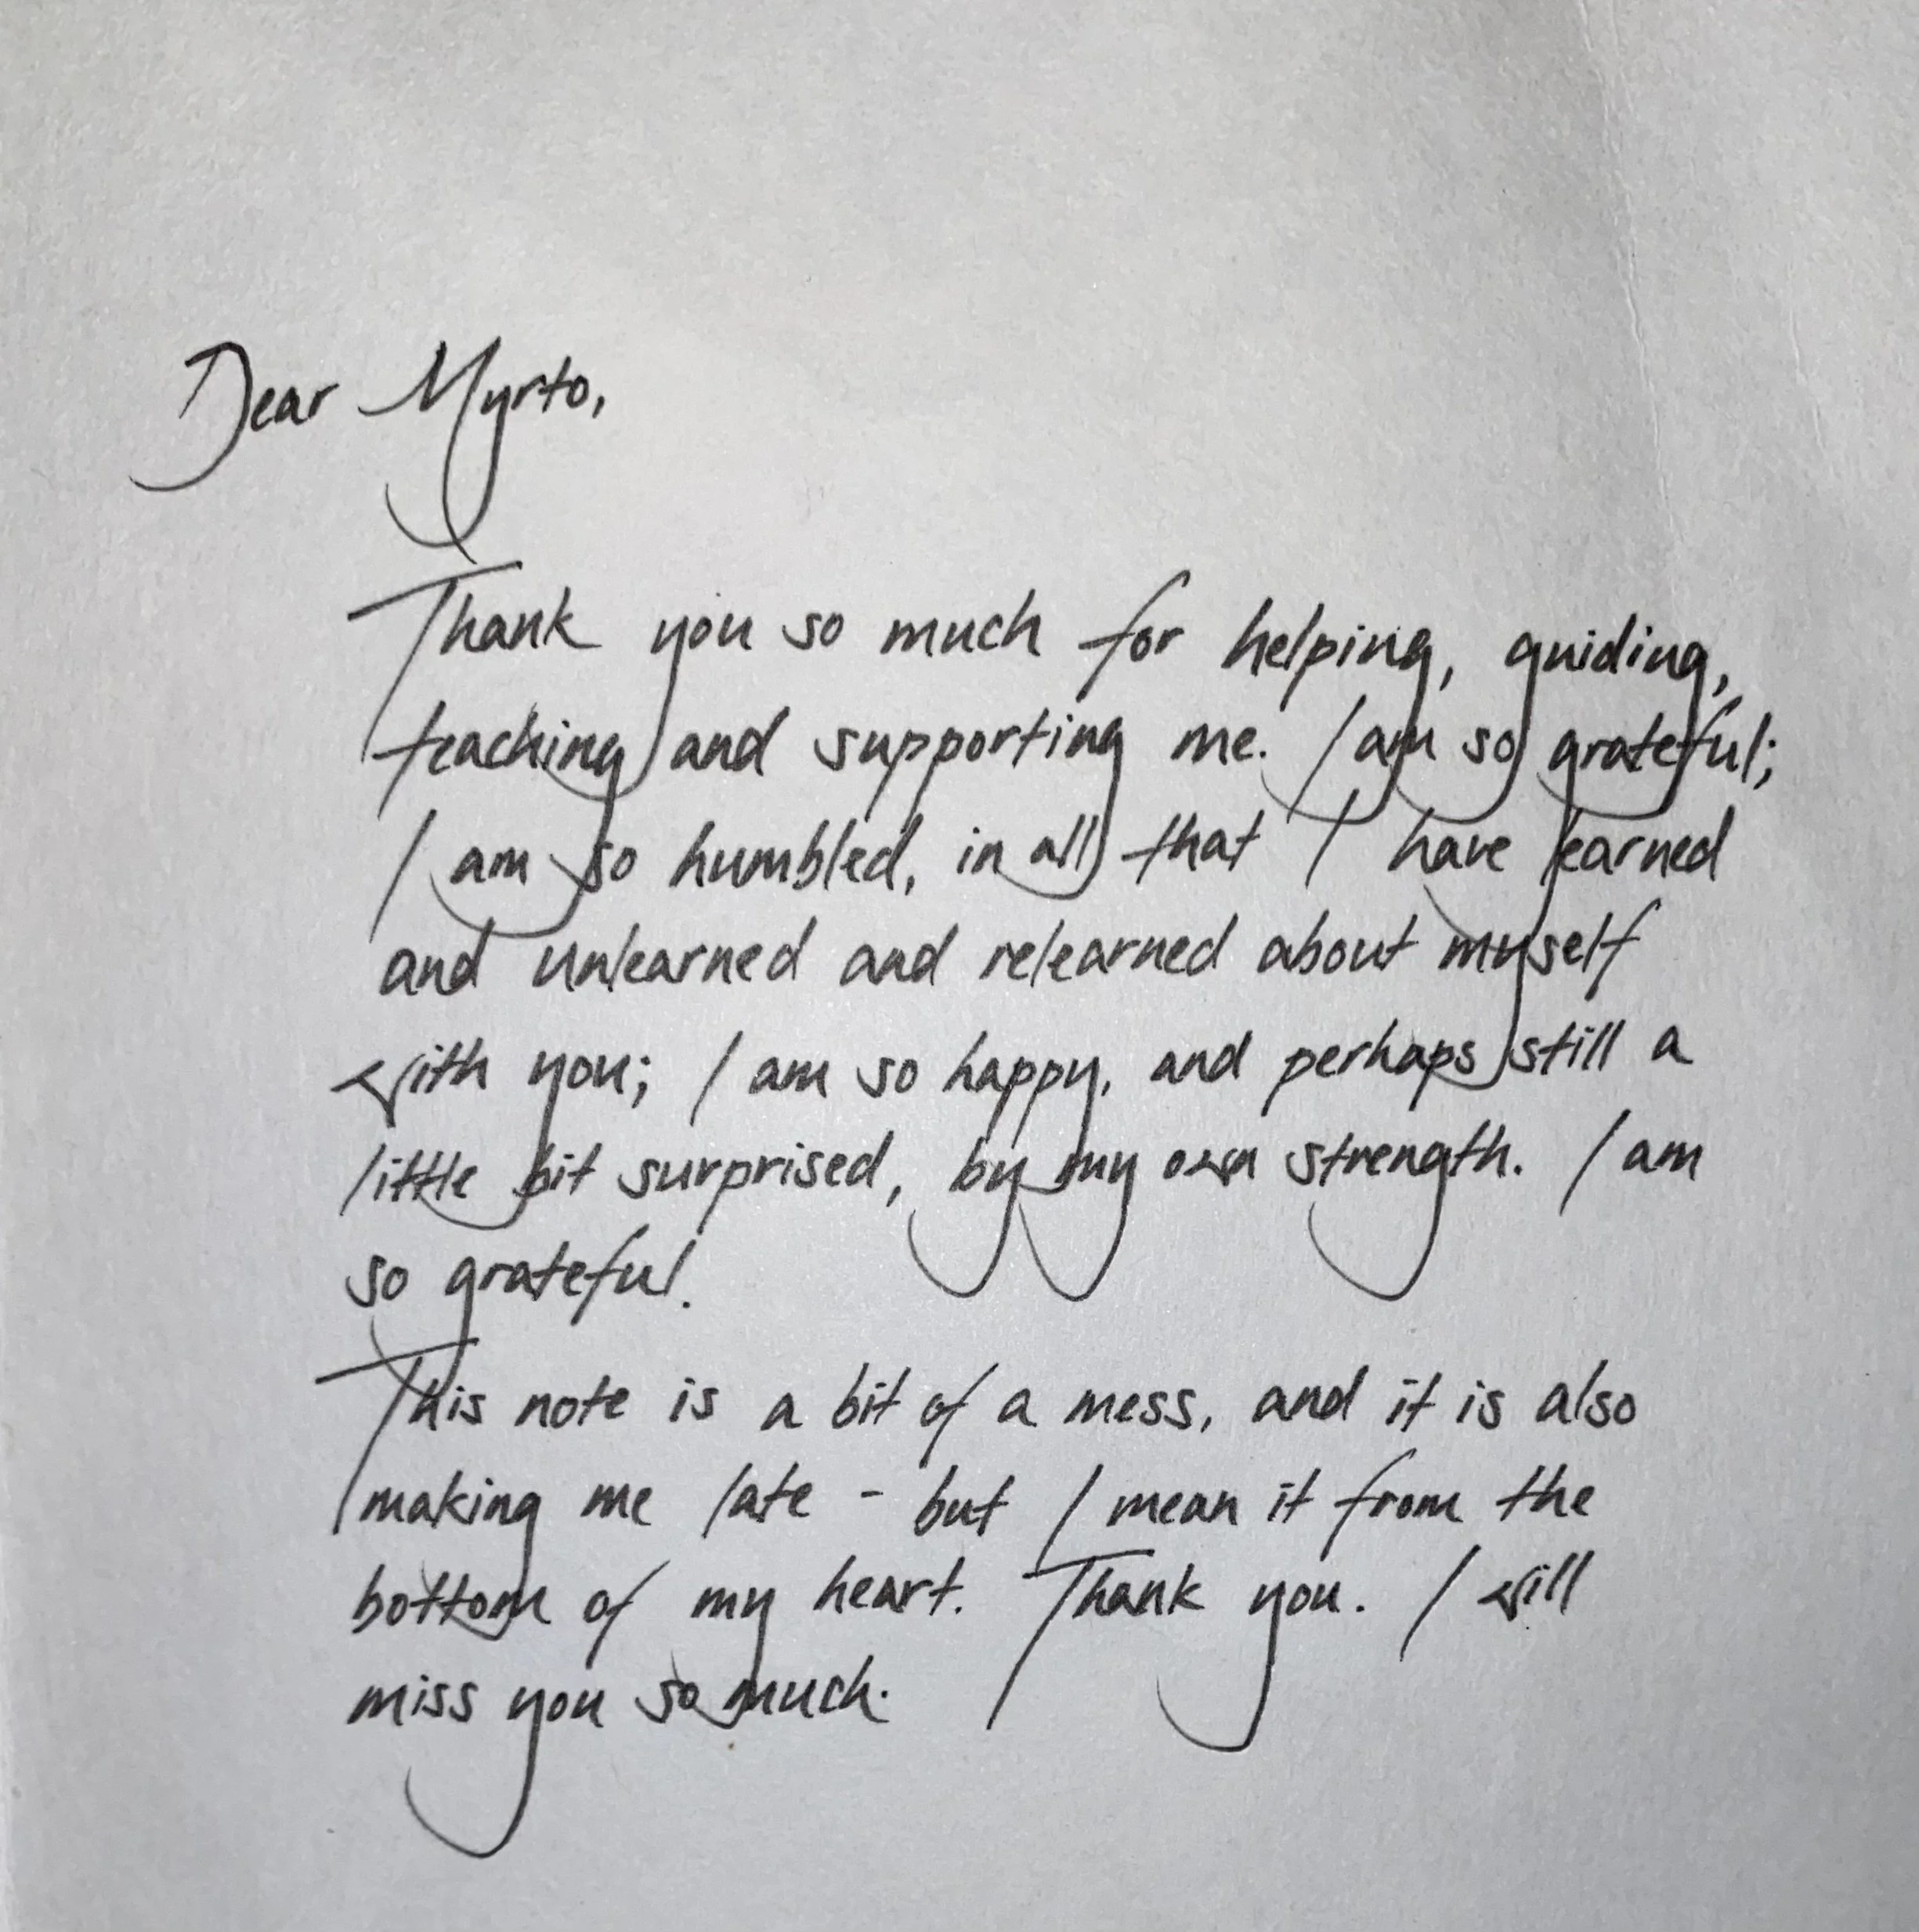 Dear Myrto,
Thank you so much for helping, guiding,
teaching and supporting me. I am so grateful;
I am so humbled, in all that I have learned
and unlearned and relearned about myself
with you; I am so happy, and perhaps still a
little bit surprised, by my own strength. I am
so grateful.
This note is a bit of a mess, and it is also
making me late - but I mean it from the
bottom of my heart. Thank you. I will
miss you so much.